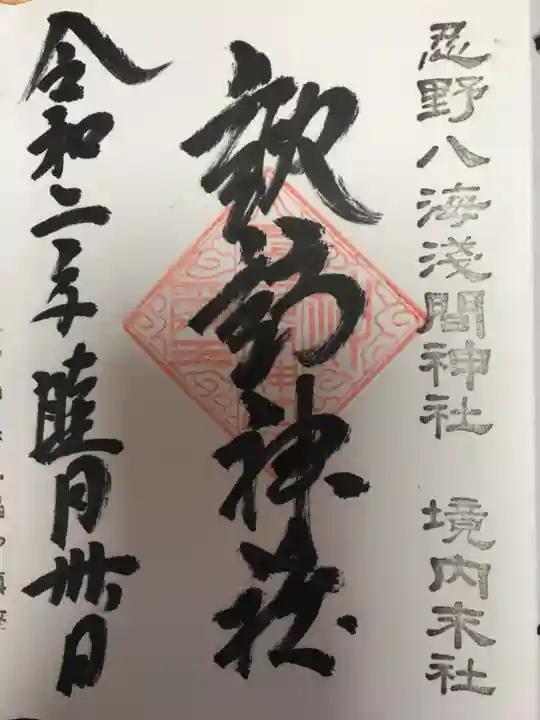 忍野八海淺間神社 境内末社
諏訪神社
令和二年睦月卅日